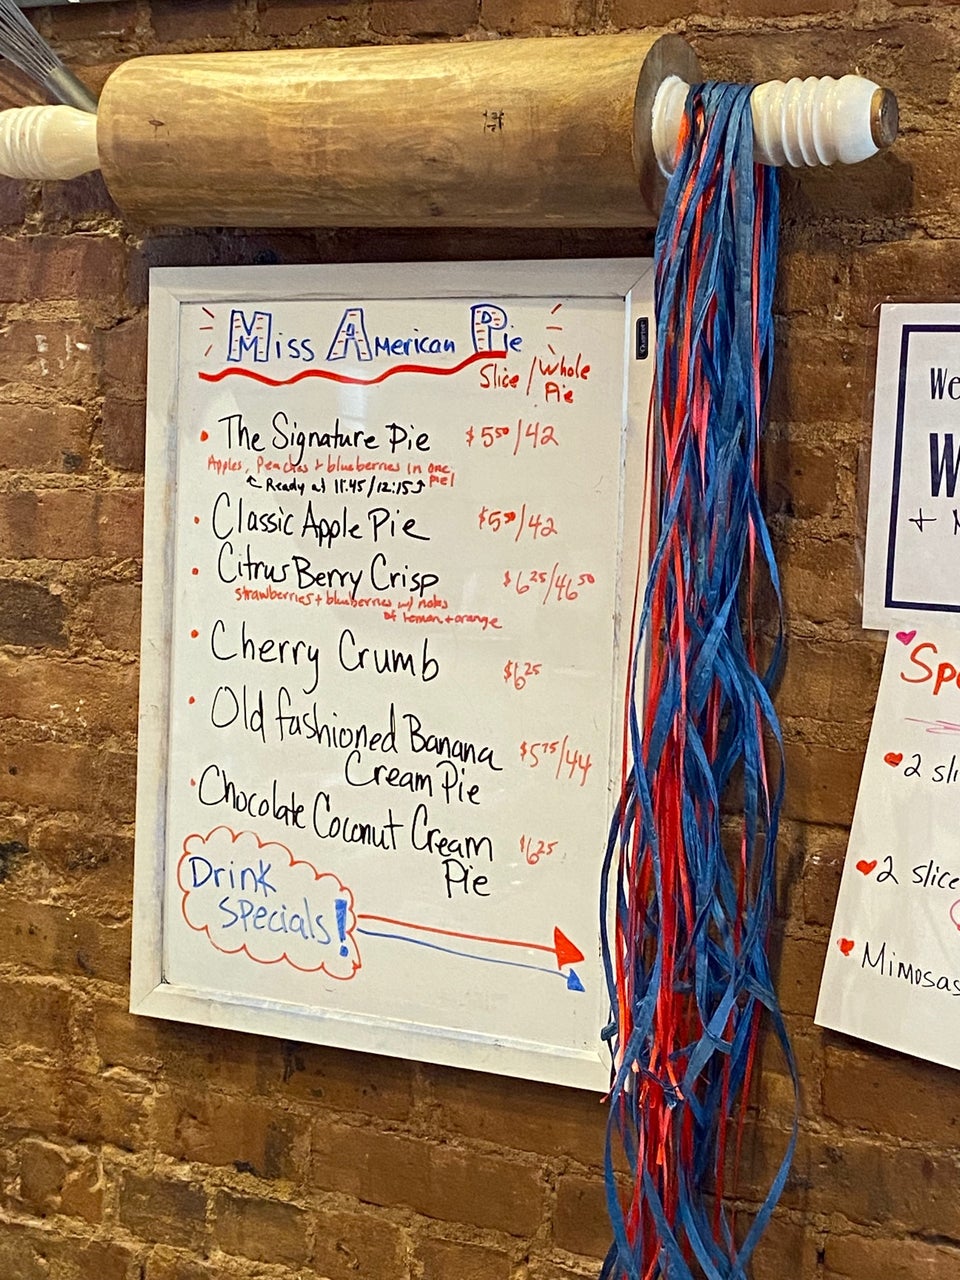 Miss American Pie
Slice / Whole
Pie
• The Signature Pie $5⁵⁰/42
Apples, Peaches + blueberries in one
Pie!
Ready at 11:45/12:15
• Classic Apple Pie $5⁵⁰/42
• Citrus Berry Crisp $6²⁵/46⁵⁰
strawberries + blueberries w/ notes
of lemon + orange
• Cherry Crumb $6²⁵
• Old fashioned Banana $5⁷⁵/44
Cream Pie
• Chocolate Coconut Cream $6²⁵
Pie
Drink
Specials!
We
W
+
Sp
2 sli
2 slice
Mimosas